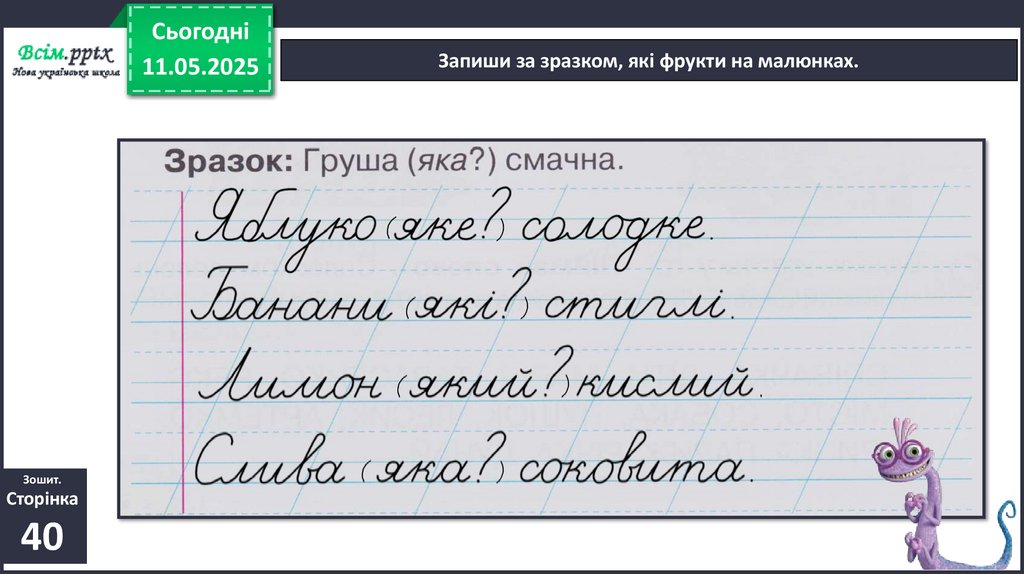 Всім.pptx
Нова українська школа
Сьогодні
11.05.2025
Запиши за зразком, які фрукти на малюнках.
Зразок: Груша (яка?) смачна.
Яблуко (яке?) солодке.
Банани (які?) стиглі.
Лимон (який?) кислий.
Слива (яка?) соковита.
Зошит.
Сторінка
40